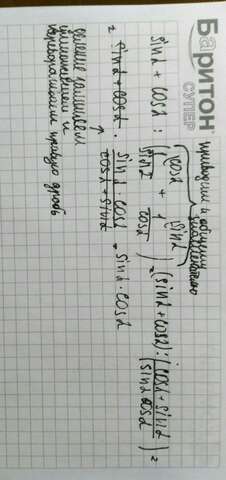 Баритон
СУПЕР
приводим к общему
знаменателю
sinα + cosα : (1/sinα + 1/cosα) = (sinα + cosα) : (cosα + sinα / sinα cosα) =
cosα sinα
= sinα + cosα · sinα · cosα / cosα + sinα = sinα · cosα
деление заменяем
умножением и
переворачиваем правую дробь